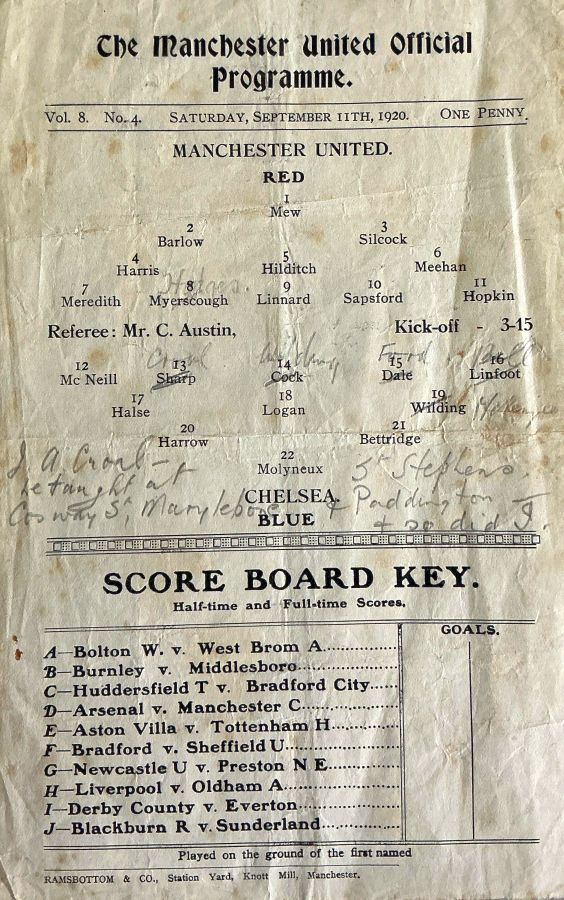 The Manchester United Official
Programme.
Vol. 8. No. 4. SATURDAY, SEPTEMBER 11TH, 1920. ONE PENNY.
MANCHESTER UNITED.
RED
1
Mew
2 3
Barlow Silcock
4 5 6
Harris Hilditch Meehan
7 8 9 10 11
Meredith Myerscough Linnard Sapsford Hopkin
Referee: Mr. C. Austin, Kick-off - 3-15
Croal Wilding Ford
12 13 14 15 16
Mc Neill Sharp Cock Dale Linfoot
17 18 19
Halse Logan Wilding
20 21
Harrow Bettridge
22
Molyneux
J. A. Croal - St Stephens.
he taught at
CHELSEA.
Cosway St, Marylebone & Paddington
BLUE
& so did I.
SCORE BOARD KEY.
Half-time and Full-time Scores.
GOALS.
A—Bolton W. v. West Brom A.
B—Burnley v. Middlesboro
C—Huddersfield T v. Bradford City
D—Arsenal v. Manchester C.
E—Aston Villa v. Tottenham H.
F—Bradford v. Sheffield U.
G—Newcastle U v. Preston N E
H—Liverpool v. Oldham A
I—Derby County v. Everton
J—Blackburn R v. Sunderland
Played on the ground of the first named
RAMSBOTTOM & CO., Station Yard, Knott Mill, Manchester.